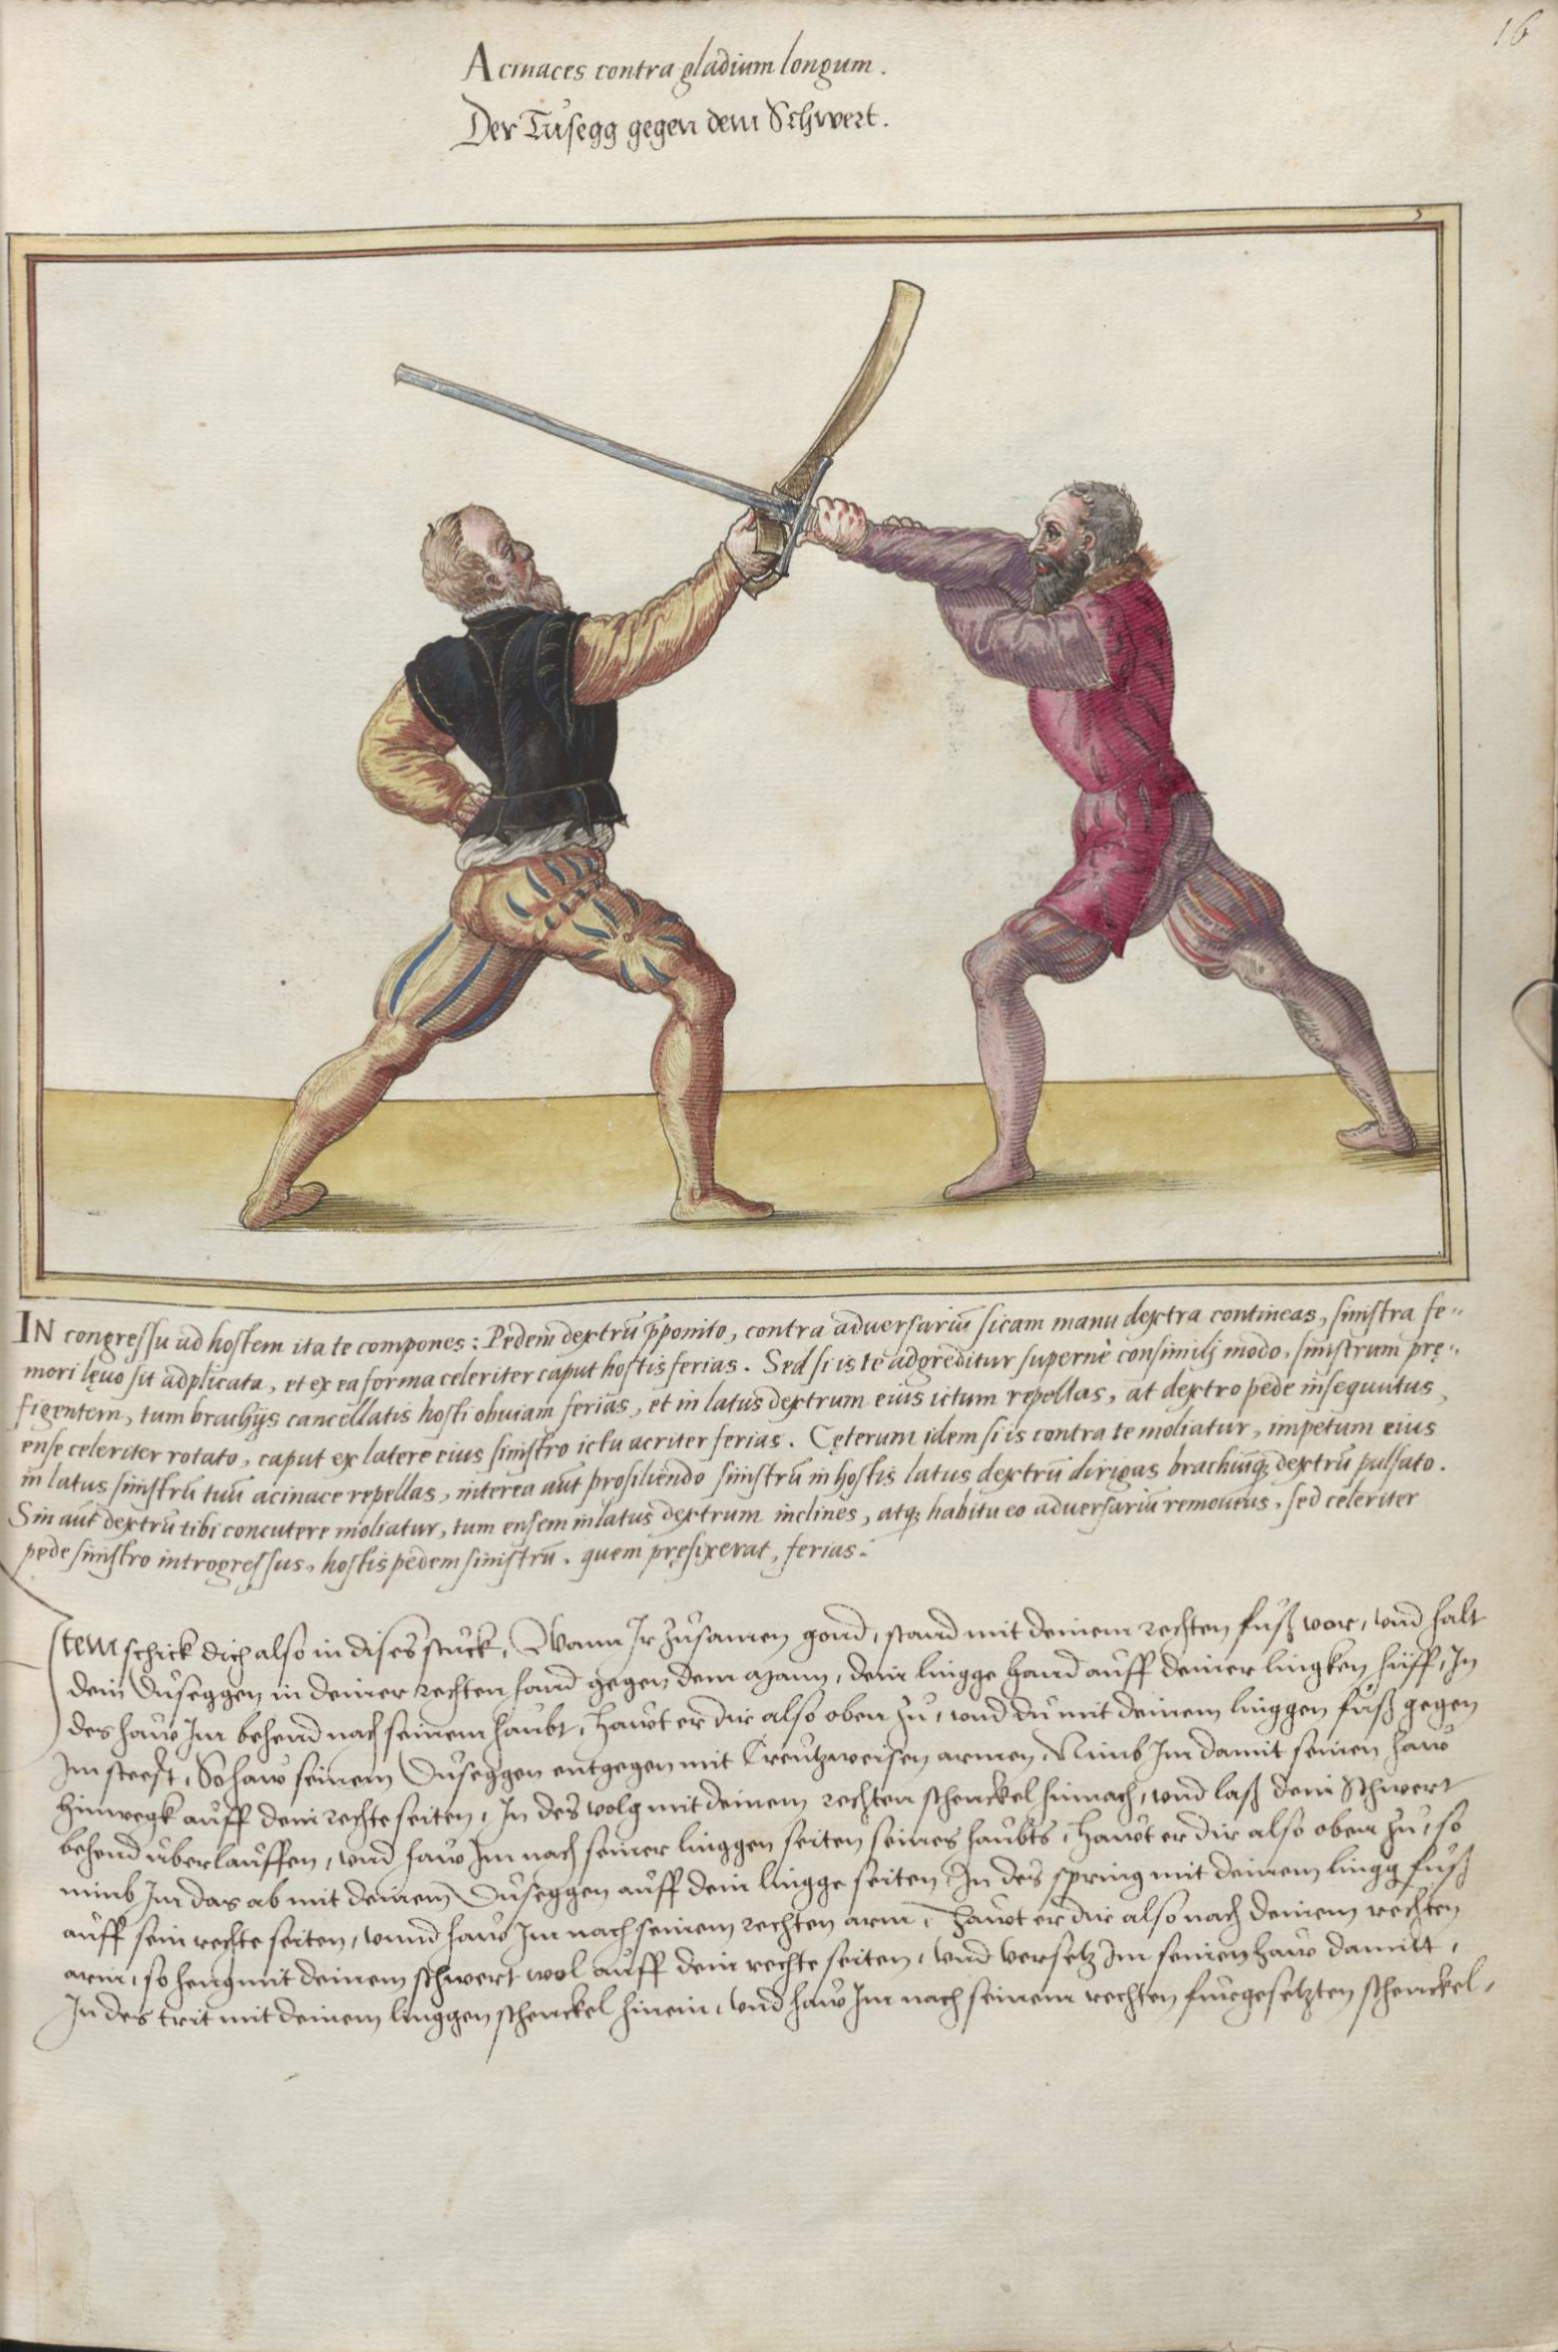 16
Acinaces contra gladium longum.
Der Tusegg gegen dem Schwert.
5
IN congressu ad hostem ita te compones: Pedem dextrū p̄ponito, contra adversariū sicam manu dextra contineas, sinistra fe„
mori lęuo sit adplicata, et ex ea forma celeriter caput hostis ferias. Sed si is te adgreditur supernè consimilj modo, sinistrum prę„
figentem, tum brachijs cancellatis hosti obuiam ferias, et in latus dextrum eius ictum repellas, at dextro pede insequutus,
ense celeriter rotato, caput ex latere eius sinistro ictu acriter ferias. Cęterum idem si is contra te moliatur, impetum eius
in latus sinistrū tuū acinace repellas, interea aūt prosiliendo sinistrū in hostis latus dextrū dirigas brachiūq; dextrū pulsato.
Sin aūt dextrū tibi concutere moliatur, tum ensem in latus dextrum inclines, atq; habitu eo adversariū remoueas, sed celeriter
pede sinistro introgressus, hostis pedem sinistrū, quem pręfixerat, ferias.
Item schick dich also in dises stuck, Wann Ir zusamen gond, stand mit deinem rechten fuß vor, vnd halt
dein Duseggen in deiner rechten hand gegen dem Mann, dein lingge hand auff deiner lingken hüff, In
des haw Im behend nach seinem haubt, Hawt er dir also oben zu, vnd du mit deinem linggen fuß gegen
Im steest, So haw seinem Duseggen entgegen mit Creutzweisen armen, Nimb Im damit seinen haw
hinwegk auff dein rechte seiten, In des volg mit deinem rechten schenckel hinnach, vnd laß dein Schwert
behend überlauffen, vnd haw Im nach seiner linggen seiten seines haubts, Hawt er dir also oben zu, so
nimb Im das ab mit deinem Duseggen auff dein lingge seiten, In des spring mit deinem lingg fuß
auff sein rechte seiten, vnnd haw Im nach seinem rechten arm, Hawt er dir also nach deinem rechten
arm, so heng mit deinem schwert wol auff dein rechte seiten, vnd versetz Im seinen haw damitt,
In des trit mit deinem linggen schenckel hinein, vnd haw Im nach seinem rechten fürgesetzten schenckel,